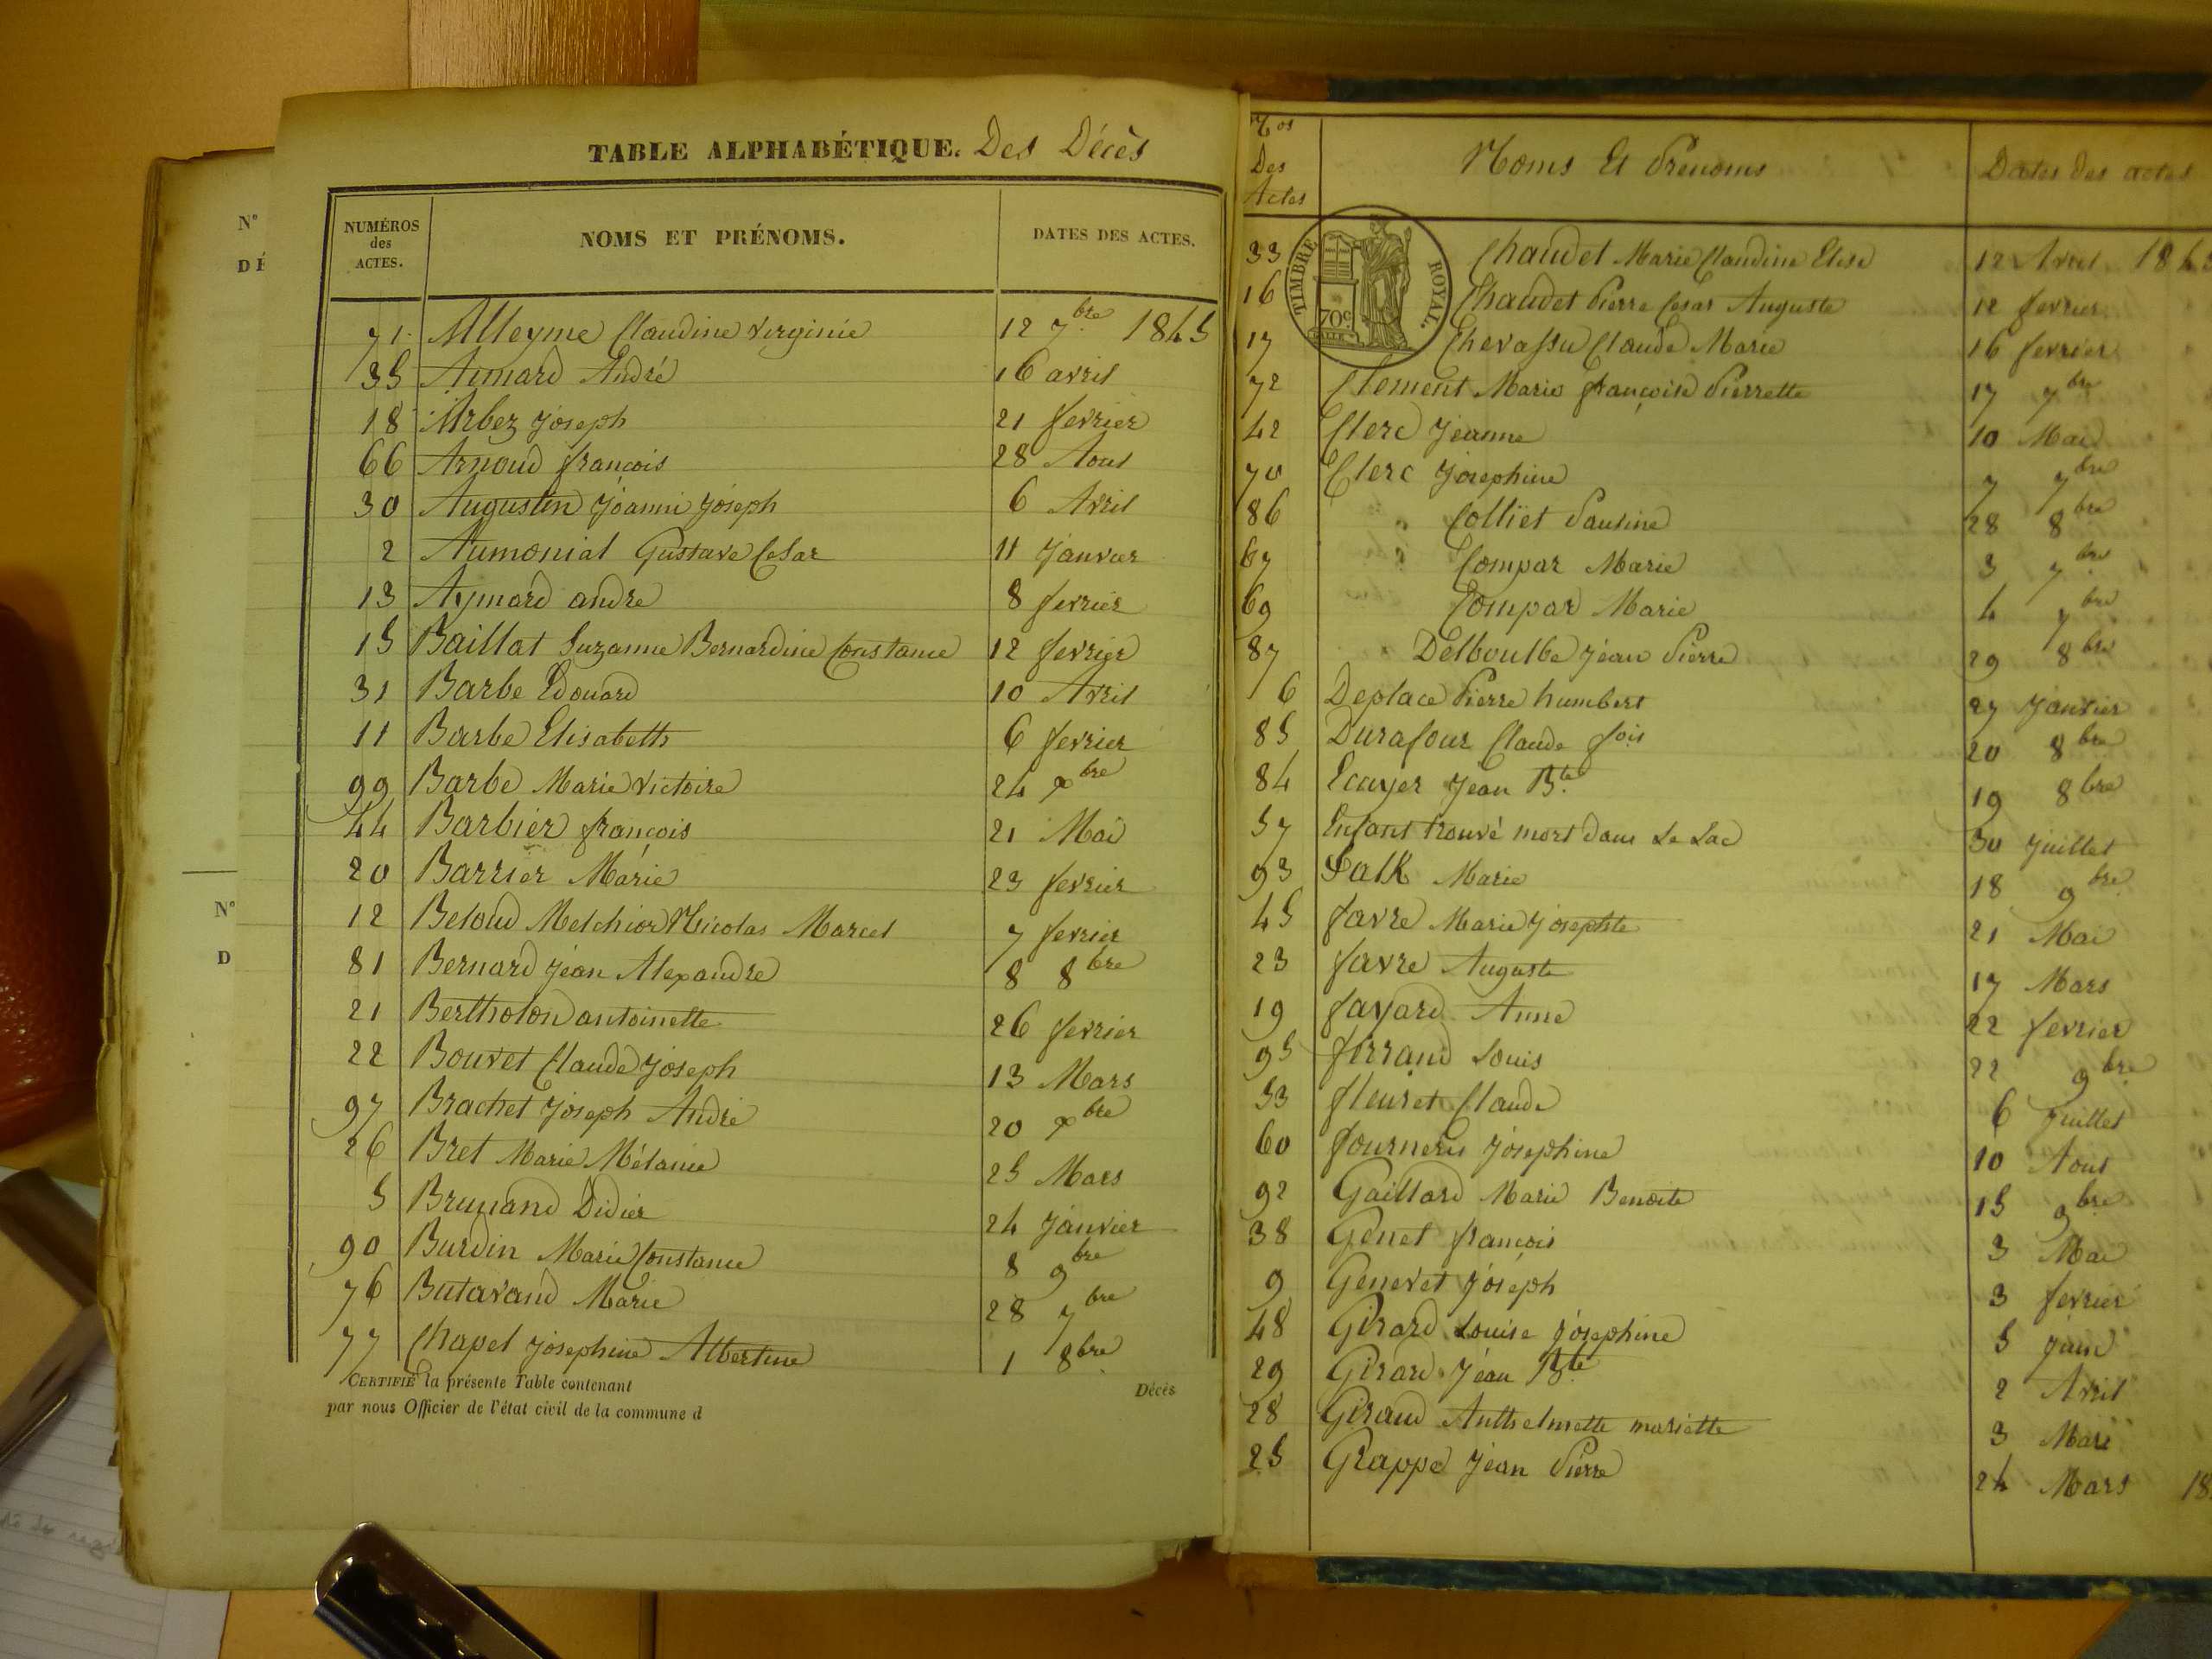 TABLE ALPHABÉTIQUE. Des Décès
NUMÉROS des ACTES. NOMS ET PRÉNOMS. DATES DES ACTES.
71 Alleyme Claudine Virginie 12 7bre 1845
35 Aimard André 16 avril
18 Arbez Joseph 21 fevrier
66 Arnoud françois 28 Aout
30 Augustin Joanni Joseph 6 Avril
2 Aumonial Gustave Cesar 11 Janvier
13 Aymard andré 8 fevrier
15 Baillat Suzanne Bernardine Constance 12 fevrier
31 Barbe Edouard 10 Avril
11 Barbe Elisabeth 6 fevrier
99 Barbe Marie Victoire 24 xbre
44 Barbier françois 21 Mai
20 Barrier Marie 23 fevrier
12 Beloud Melchior Nicolas Marcel 7 fevrier
81 Bernard Jean Alexandre 8 8bre
21 Bertholon antoinette 26 fevrier
22 Bouvet Claude Joseph 13 Mars
97 Brachet Joseph André 20 xbre
26 Bret Marie Mélanie 25 Mars
5 Brunand Didier 24 Janvier
90 Burdin Marie Constance 8 9bre
76 Butavand Marie 28 7bre
77 Chapel Josephine Albertine 1 8bre
CERTIFIÉ la présente Table contenant Décès
par nous Officier de l'état civil de la commune d
Nos Des Actes Noms Et Prénoms Dates des actes
TIMBRE ROYAL.
70c
33 Chaudet Marie Claudine Elise 12 Avril 1845
16 Chaudet Pierre Cesar Auguste 12 fevrier
17 Chevassu Claude Marie 16 fevrier
72 Clement Marie françoise Pierrette 17 7bre
42 Clerc Jeanne 10 Mai
70 Clerc Josephine 7 7bre
86 Colliet Pauline 28 8bre
67 Compar Marie 3 7bre
69 Compar Marie 4 7bre
87 Delboulbe Jean Pierre 29 8bre
6 Deplace Pierre humbert 27 Janvier
85 Durafour Claude fois 20 8bre
84 Ecuyer Jean Bte 19 8bre
57 Enfant trouvé mort dans Le Lac 30 Juillet
93 Falk Marie 18 9bre
45 favre Marie Josephte 21 Mai
23 favre Auguste 17 Mars
19 fayard Anne 22 fevrier
95 ferrand Louis 22 9bre
53 fleuret Claude 6 Juillet
60 fourneris Josephine 10 Aout
92 Gaillard Marie Benoite 15 9bre
38 Genet françois 3 Mai
9 Genevet Joseph 3 fevrier
48 Girard Louise Josephine 5 Juin
29 Girard Jean Bte 2 Avril
28 Giraud Anthelmette mariette 3 Mars
25 Grappe Jean Pierre 24 Mars 18
N°
DÉ
N°
D